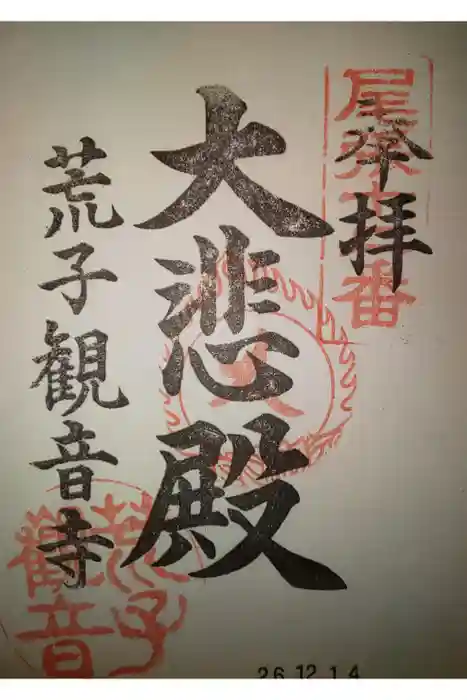 奉拝
尾張六番
大悲殿
荒子観音寺
荒子
観音
26.12.14